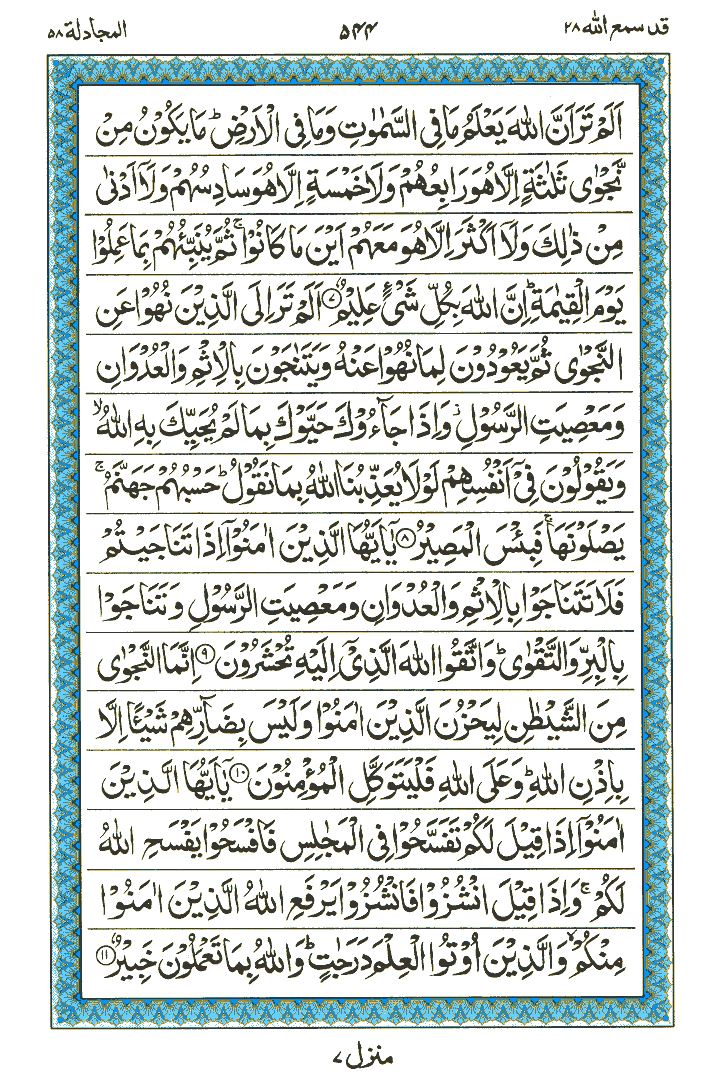 قد سمع الله ٢٨
٥٤٤
المجادلة ٥٨
اَلَمْ تَرَ اَنَّ اللّٰهَ يَعْلَمُ مَا فِي السَّمٰوٰتِ وَمَا فِي الْاَرْضِ ؕ مَا يَكُوْنُ مِنْ
نَّجْوٰى ثَلٰثَةٍ اِلَّا هُوَ رَابِعُهُمْ وَلَا خَمْسَةٍ اِلَّا هُوَ سَادِسُهُمْ وَلَاۤ اَدْنٰى
مِنْ ذٰلِكَ وَلَاۤ اَكْثَرَ اِلَّا هُوَ مَعَهُمْ اَيْنَ مَا كَانُوْا ۚ ثُمَّ يُنَبِّئُهُمْ بِمَا عَمِلُوْا
يَوْمَ الْقِيٰمَةِ ؕ اِنَّ اللّٰهَ بِكُلِّ شَيْءٍ عَلِيْمٌ ۝٧ اَلَمْ تَرَ اِلَى الَّذِيْنَ نُهُوْا عَنِ
النَّجْوٰى ثُمَّ يَعُوْدُوْنَ لِمَا نُهُوْا عَنْهُ وَيَتَنٰجَوْنَ بِالْاِثْمِ وَالْعُدْوَانِ
وَمَعْصِيَتِ الرَّسُوْلِ ۫ وَاِذَا جَآءُوْكَ حَيَّوْكَ بِمَا لَمْ يُحَيِّكَ بِهِ اللّٰهُ ۙ
وَيَقُوْلُوْنَ فِيْۤ اَنْفُسِهِمْ لَوْلَا يُعَذِّبُنَا اللّٰهُ بِمَا نَقُوْلُ ؕ حَسْبُهُمْ جَهَنَّمُ ۚ
يَصْلَوْنَهَا ۚ فَبِئْسَ الْمَصِيْرُ ۝٨ يٰۤاَيُّهَا الَّذِيْنَ اٰمَنُوْۤا اِذَا تَنَاجَيْتُمْ
فَلَا تَتَنَاجَوْا بِالْاِثْمِ وَالْعُدْوَانِ وَمَعْصِيَتِ الرَّسُوْلِ وَتَنَاجَوْا
بِالْبِرِّ وَالتَّقْوٰى ؕ وَاتَّقُوا اللّٰهَ الَّذِيْۤ اِلَيْهِ تُحْشَرُوْنَ ۝٩ اِنَّمَا النَّجْوٰى
مِنَ الشَّيْطٰنِ لِيَحْزُنَ الَّذِيْنَ اٰمَنُوْا وَلَيْسَ بِضَآرِّهِمْ شَيْـًٔا اِلَّا
بِاِذْنِ اللّٰهِ ؕ وَعَلَى اللّٰهِ فَلْيَتَوَكَّلِ الْمُؤْمِنُوْنَ ۝١٠ يٰۤاَيُّهَا الَّذِيْنَ
اٰمَنُوْۤا اِذَا قِيْلَ لَكُمْ تَفَسَّحُوْا فِي الْمَجٰلِسِ فَافْسَحُوْا يَفْسَحِ اللّٰهُ
لَكُمْ ۚ وَاِذَا قِيْلَ انْشُزُوْا فَانْشُزُوْا يَرْفَعِ اللّٰهُ الَّذِيْنَ اٰمَنُوْا
مِنْكُمْ ۙ وَالَّذِيْنَ اُوْتُوا الْعِلْمَ دَرَجٰتٍ ؕ وَاللّٰهُ بِمَا تَعْمَلُوْنَ خَبِيْرٌ ۝١١
منزل ٧